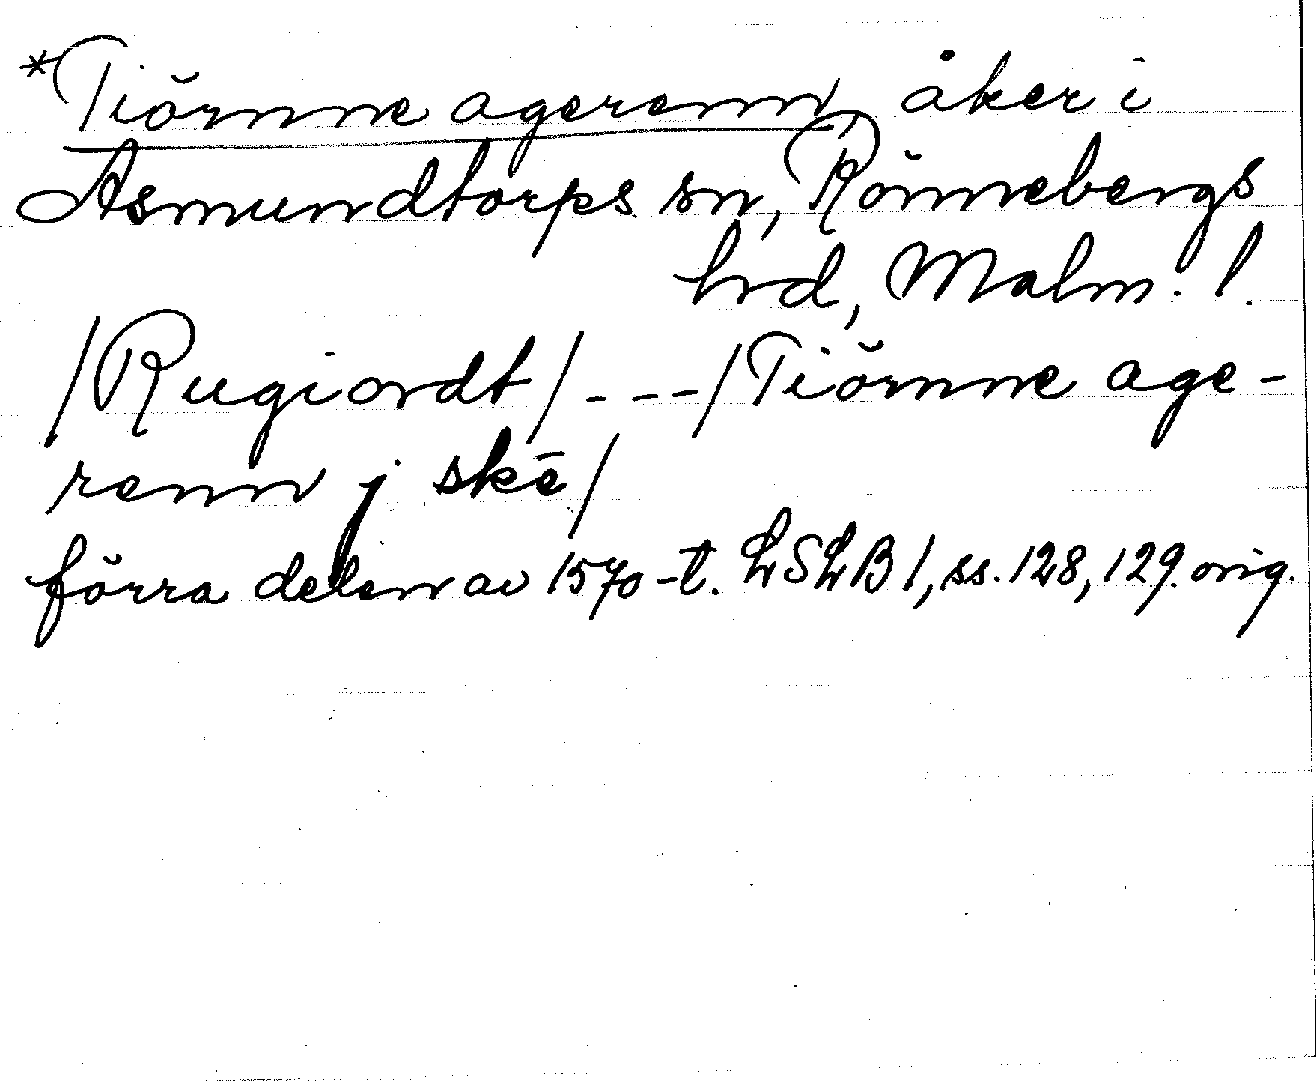 *Tiörnne agerenn, åker i
Asmundtorps sn, Rönnebergs
hrd, Malm. l.
/Rugiordt/---/Tiörnne age-
renn j skē/
förra delen av 1570-t. LSLB 1, ss. 128, 129. orig.